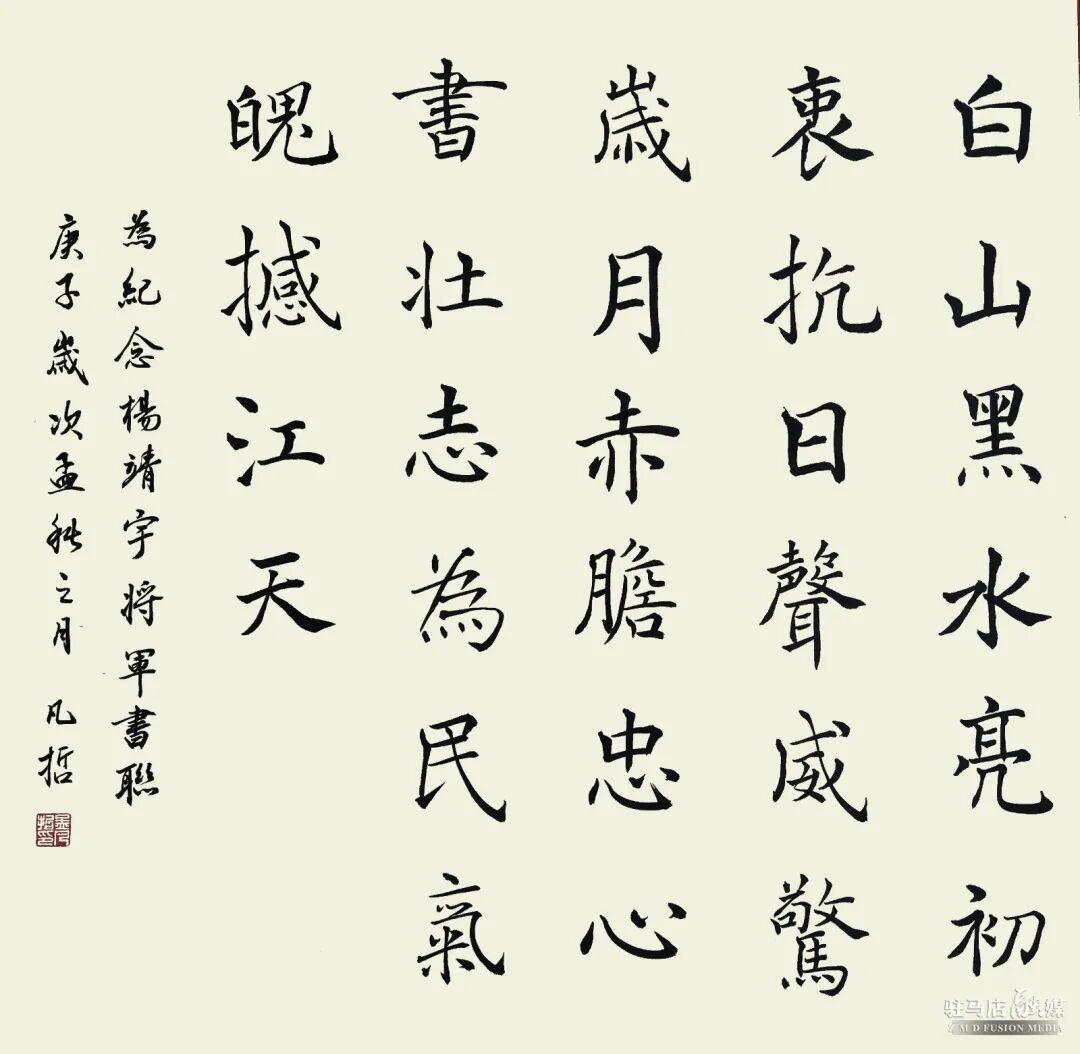 白山黑水亮初
衷抗日聲威驚
歲月赤膽忠心
書壯志為民氣
魄撼江天
為紀念楊靖宇將軍書聯
庚子歲次孟秋之月 凡哲
驻马店融媒
ZMD FUSION MEDIA